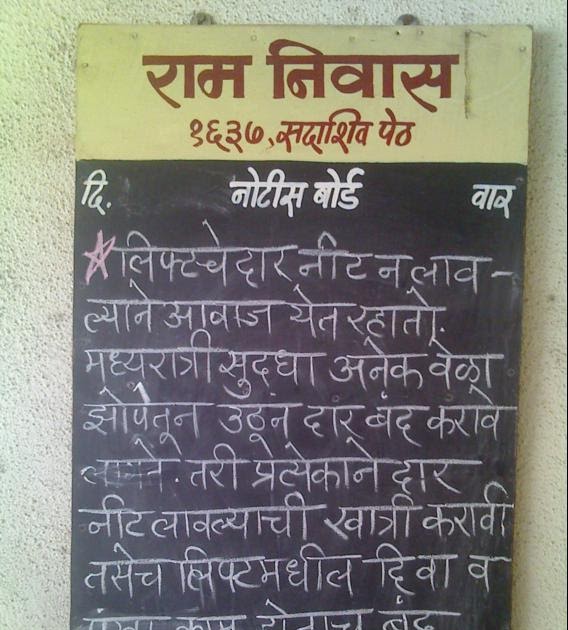 राम निवास
१६३७, सदाशिव पेठ
दि. नोटीस बोर्ड वार
लिफ्टचे दार नीट न लाव -
ल्याने आवाज येत रहातो.
मध्यरात्री सुद्धा अनेक वेळा
झोपेतून उठून दार बंद करावे
लागते. तरी प्रत्येकाने दार
नीट लावल्याची खात्री करावी
तसेच लिफ्टमधील दिवा व
पंखा काम होताच बंद